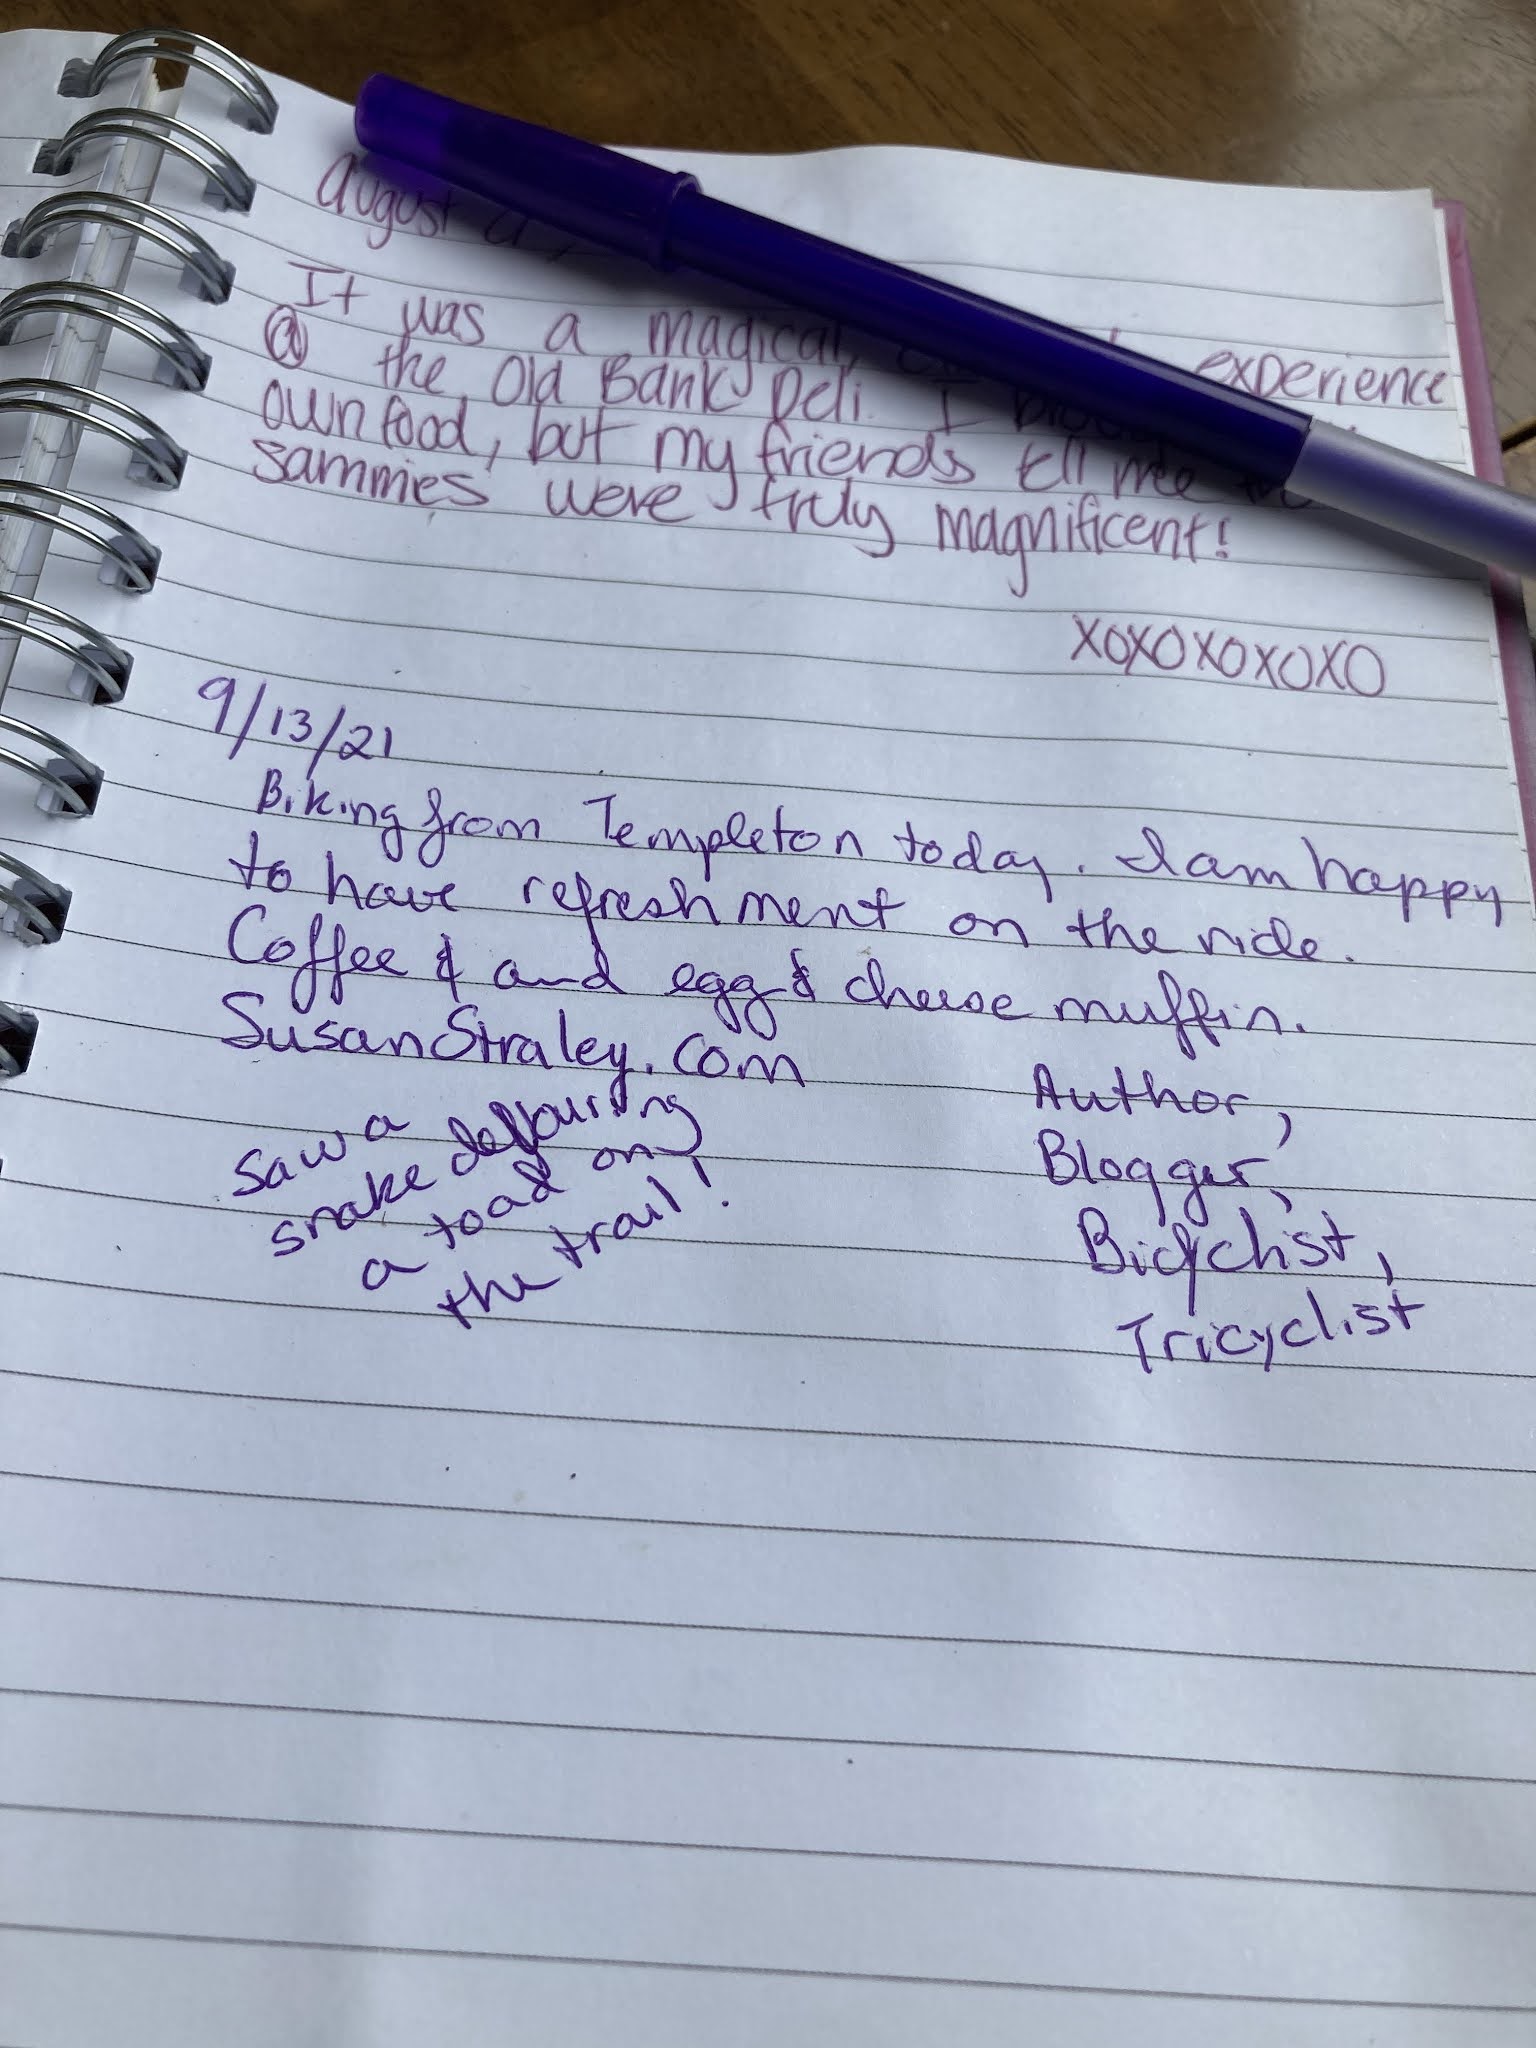 august
It was a magical, experience
@ the Old Bank Deli. I
own food, but my friends tell me
sammies were truly magnificent!
XOXOXOXOXO
9/13/21
Biking from Templeton today. I am happy
to have refreshment on the ride.
Coffee & and egg & cheese muffin.
SusanStraley.com
Author,
Blogger,
Bicyclist,
Tricyclist
Saw a
snake devouring
a toad on
the trail!